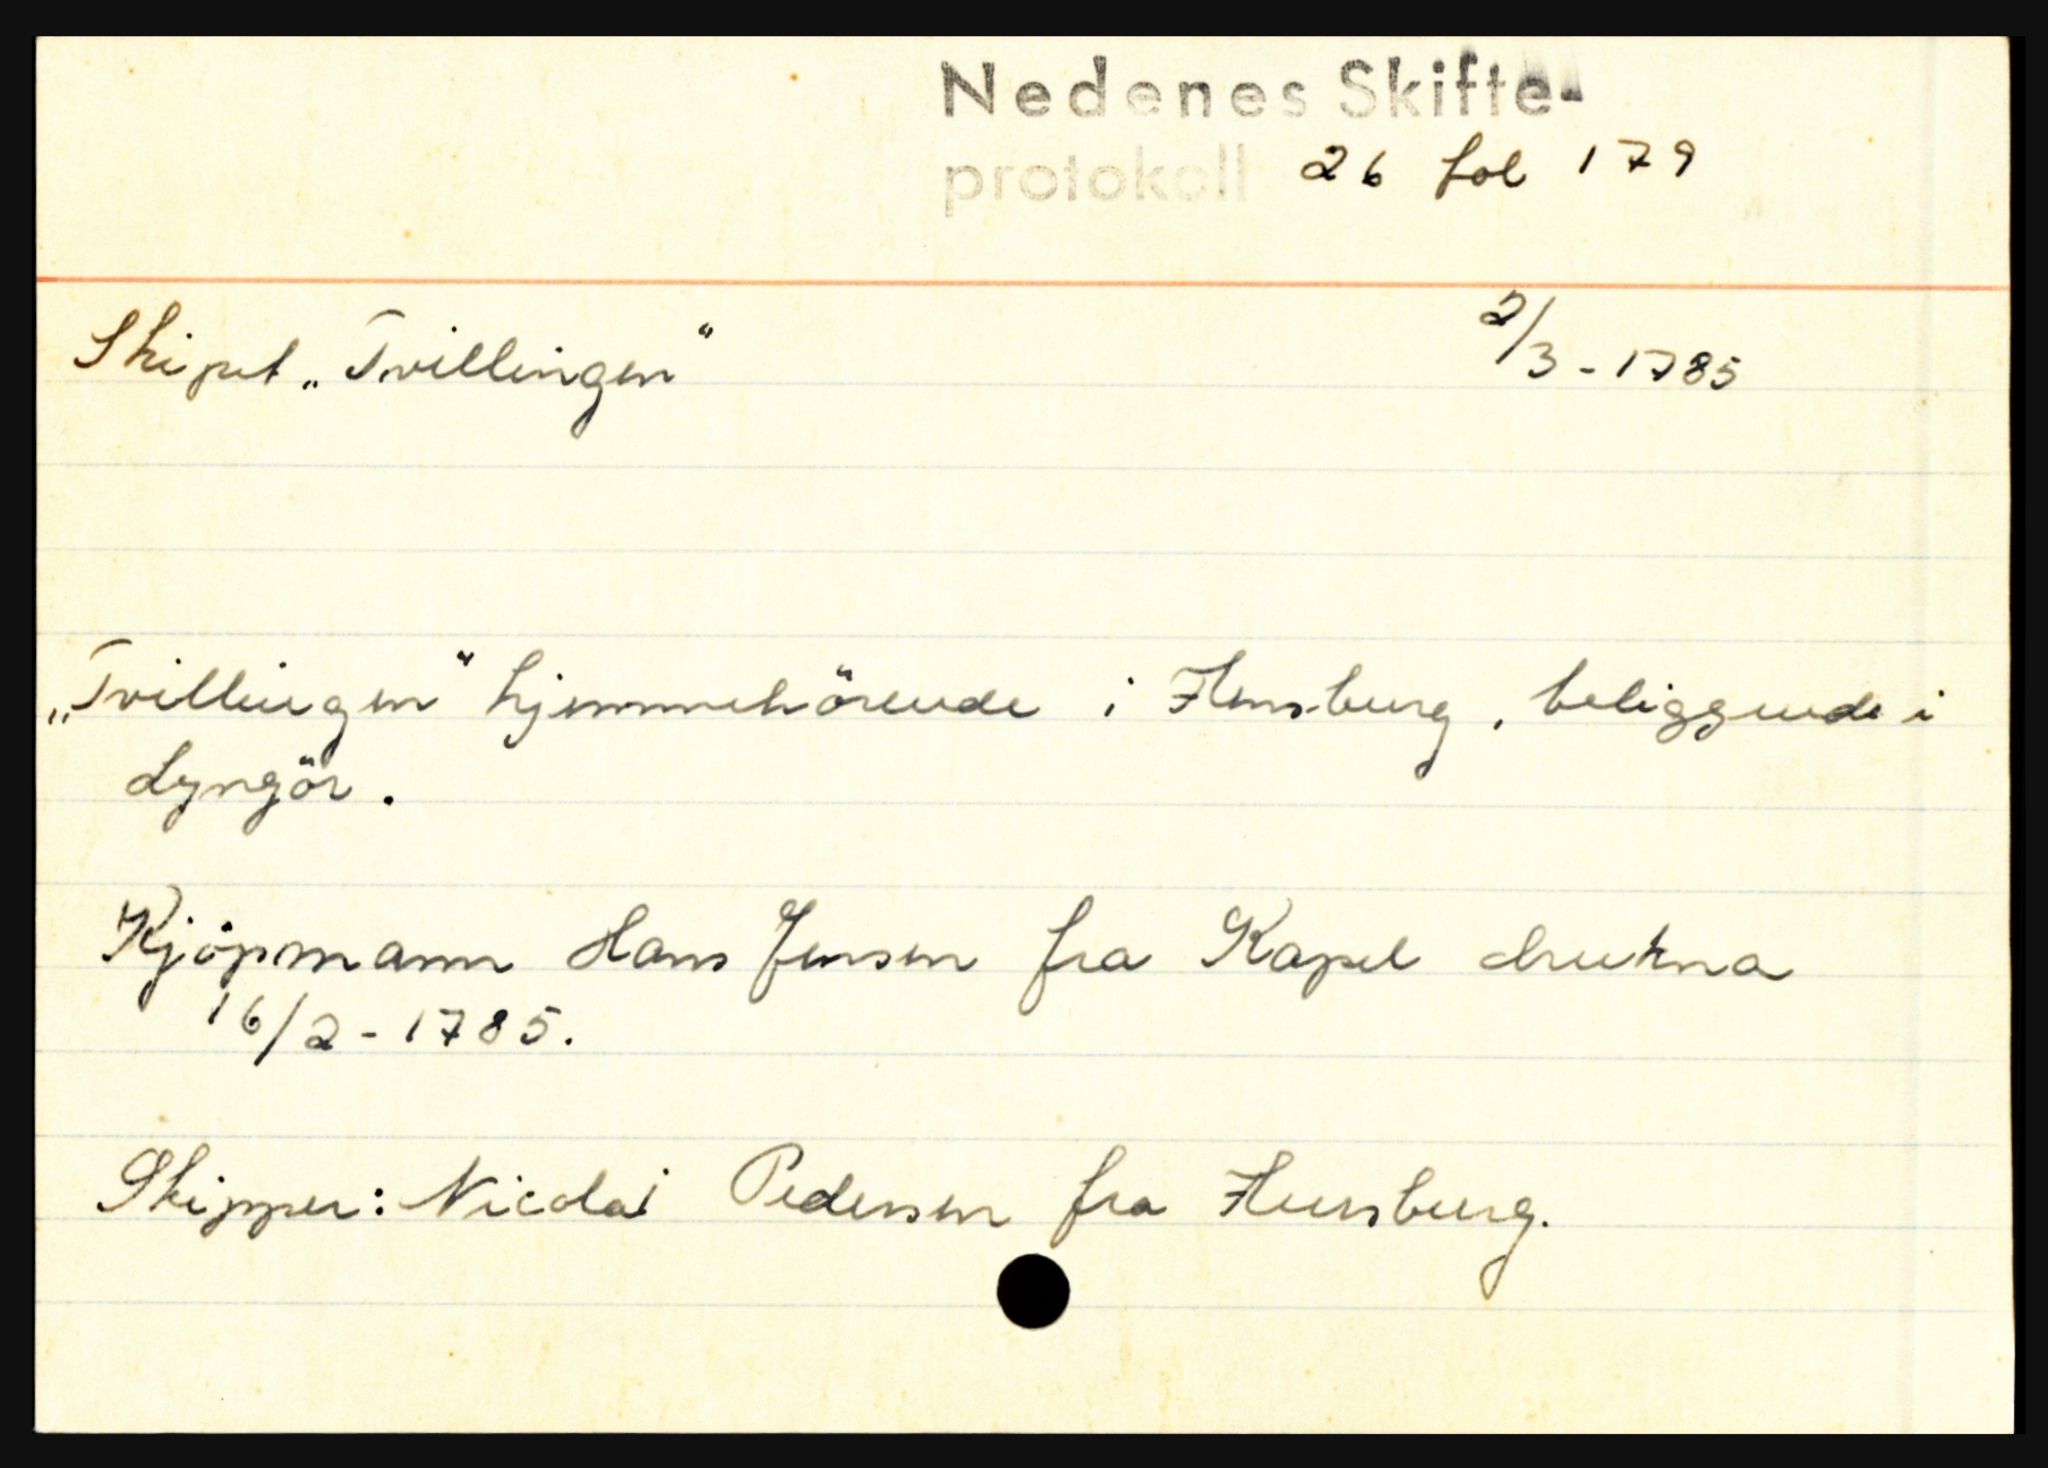 Nedenes Skifte-
protokoll 26 fol 179
Skipet „Tvillingen“ 2/3-1785
„Tvillingen“ hjemmehörende i Flensburg, beliggende i
Lyngör.
Kjöpmann Hans Jensen fra Kapel drukna
16/2-1785.
Skipper: Nicolai Pedersen fra Flensburg.